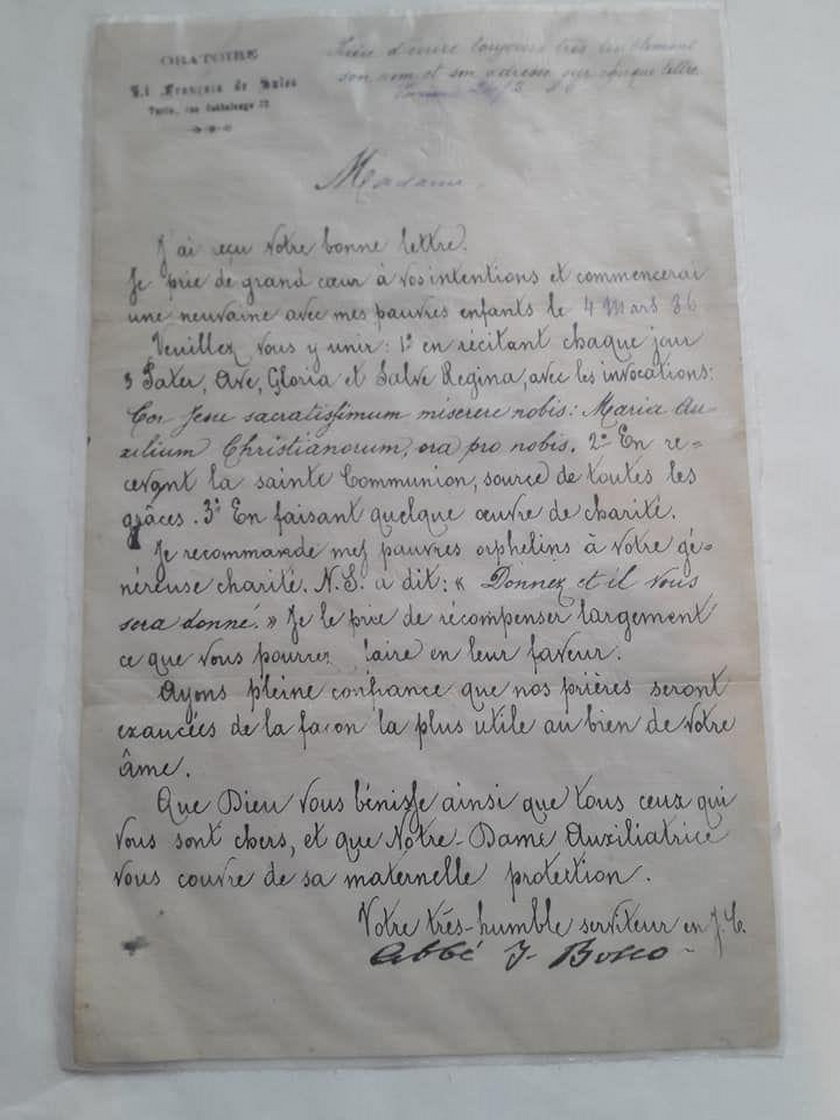 ORATOIRE
St François de Sales
Turin, rue Cottolengo 32
Prière d'écrire toujours très lisiblement
son nom et son adresse sur chaque lettre.
Madame,
J'ai reçu Votre bonne lettre.
Je prie de grand cœur à vos intentions et commencerai
une neuvaine avec mes pauvres enfants le 4 Mars 86
Veuillez vous y unir: 1º en récitant chaque jour
3 Pater, Ave, Gloria et Salve Regina, avec les invocations:
Cor Jesu sacratissimum miserere nobis: Maria Au-
xilium Christianorum, ora pro nobis. 2º En re-
cevant la sainte Communion, source de toutes les
grâces. 3º En faisant quelque œuvre de charité.
Je recommande mes pauvres orphelins à Votre gé-
néreuse charité. N.S. a dit: « Donnez et il Vous
sera donné. » Je le prie de récompenser largement
ce que Vous pourrez faire en leur faveur.
Ayons pleine confiance que nos prières seront
exaucées de la façon la plus utile au bien de Votre
âme.
Que Dieu Vous bénisse ainsi que tous ceux qui
Vous sont chers, et que Notre-Dame Auxiliatrice
Vous couvre de sa maternelle protection.
Votre très-humble serviteur en J.C.
Abbé J. Bosco